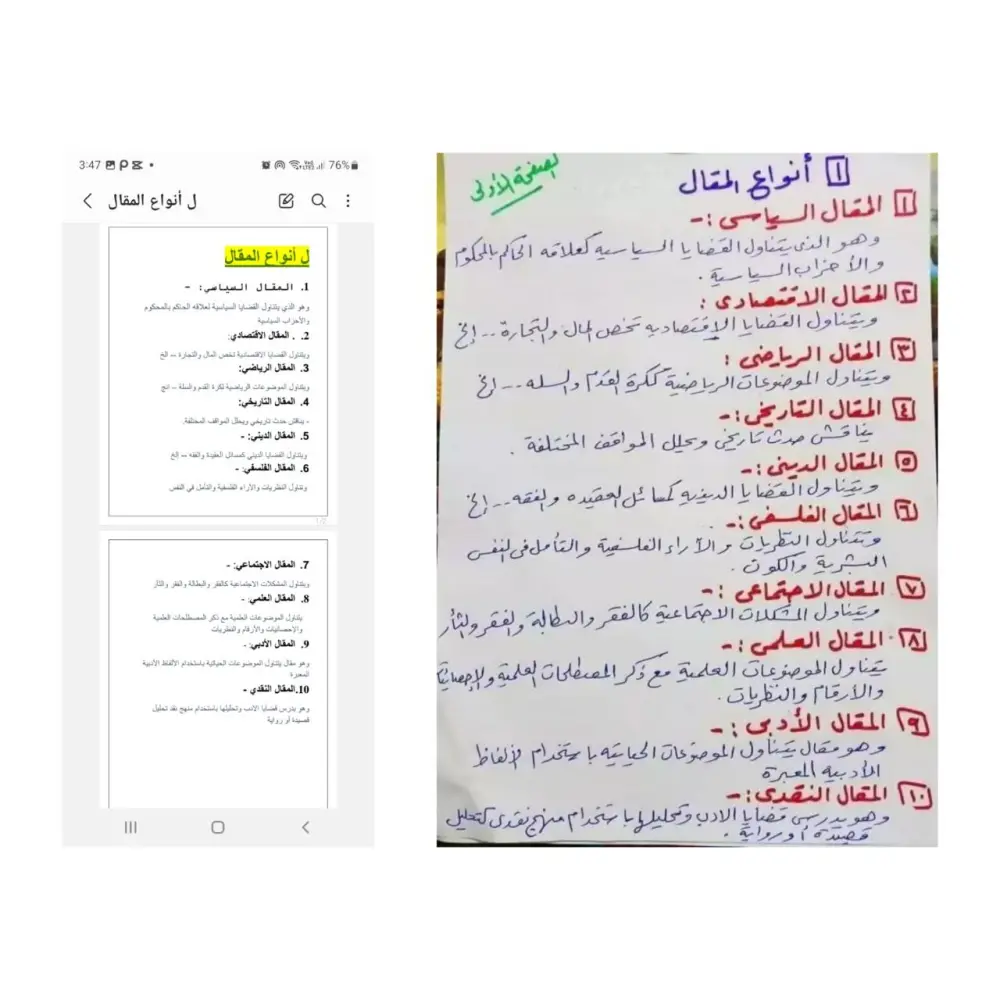 3:47
76%
ل أنواع المقال
ل أنواع المقال
1. المقال السياسي: -
وهو الذي يتناول القضايا السياسية لعلاقه الحاكم بالمحكوم
والأحزاب السياسية
2. . المقال الاقتصادي:
ويتناول القضايا الاقتصادية تخص المال والتجارة -- الخ
3. المقال الرياضي:
ويتناول الموضوعات الرياضية لكرة القدم والسلة -- انج
4. المقال التاريخي:
- يناقش حدث تاريخي ويحلل المواقف المختلفة.
5. المقال الديني: -
ويتناول القضايا الديني كمسائل العقيدة والفقه -- إلخ
6. المقال الفلسفي: -
وتناول النظريات والآراء الفلسفية والتأمل في النفس
1/2
7. المقال الاجتماعي: -
ويتناول المشكلات الاجتماعية كالفقر والبطالة والفقر والثأر
8. المقال العلمي: -
يتناول الموضوعات العلمية مع ذكر المصطلحات العلمية
والإحصائيات والأرقام والنظريات
9. المقال الأدبي: -
وهو مقال يتناول الموضوعات الحياتية باستخدام الألفاظ الأدبية
المعبرة
10.المقال النقدي -
وهو يدرس قضايا الادب وتحليلها باستخدام منهج نقد تحليل
قصيدة أو رواية
الصفحة الأولى
١ أنواع المقال
١ المقال السياسى :-
وهو الذى يتناول القضايا السياسيه كعلاقه الحاكم بالمحكوم
والأحزاب السياسية .
٢ المقال الاقتصادى :
ويتناول القضايا الإقتصاديه تخص المال والتجارة -- إلخ
٣ المقال الرياضى :
ويتناول الموضوعات الرياضية ككرة القدم والسله --- الخ
٤ المقال التاريخى :-
يناقش حدث تاريخى ويحلل المواقف المختلفة .
٥ المقال الدينى :-
ويتناول القضايا الدينيه كمسائل العقيده والفقه -- إلخ
٦ المقال الفلسفى :-
وتتناول النظريات والآراء الفلسفية والتأمل فى النفس
البشرية والكون .
٧ المقال الاجتماعى :-
ويتناول المشكلات الاجتماعية كالفقر والبطالة والفقر والثأر
٨ المقال العلمى :-
يتناول الموضوعات العلمية مع ذكر المصطلحات العلمية والإحصائيات
والأرقام والنظريات .
٩ المقال الأدبى :-
وهو مقال يتناول الموضوعات الحياتيه باستخدام الألفاظ
الأدبيه المعبرة
١٠ المقال النقدى :-
وهو يدرس قضايا الادب وتحليلها باستخدام منهج نقدى كتحليل
قصيدة أو رواية .